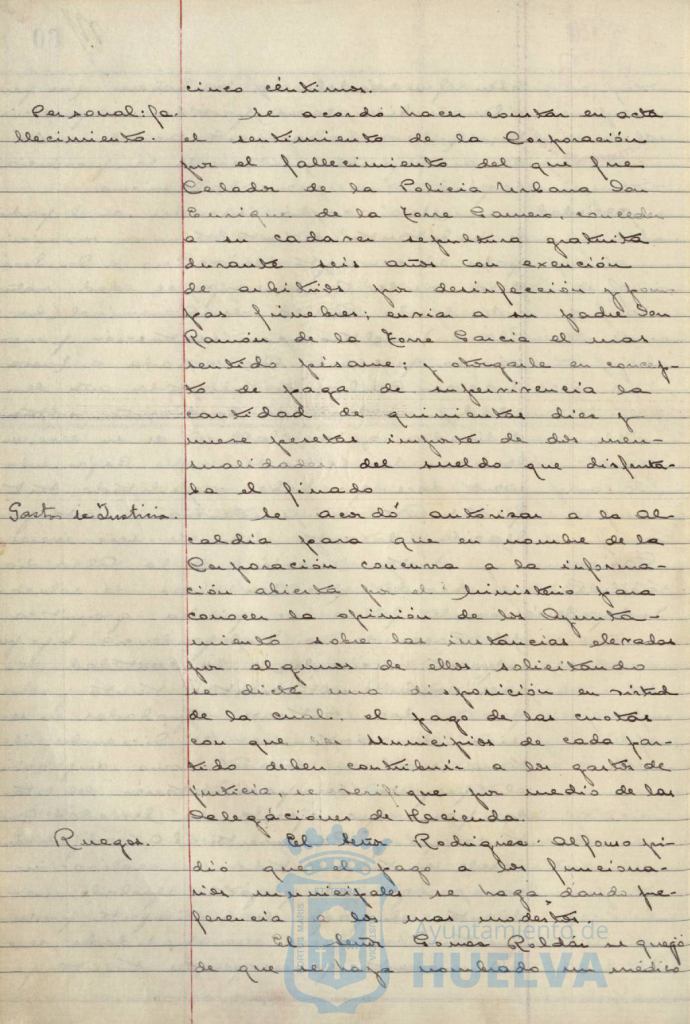 cinco céntimos.
Personal: fa-
llecimiento.
Se acordó hacer constar en acta
el sentimiento de la Corporación
por el fallecimiento del que fue
Celador de la Policia Urbana Don
Enrique de la Torre Gamero, conceder
a su cadaver sepultura gratuita
durante seis años con exención
de arbitrios por desinfección y pom-
pas fúnebres; enviar a su padre Don
Ramón de la Torre Garcia el mas
sentido pésame; y otorgarle en concep-
to de paga de supervivencia la
cantidad de quinientas diez y
nueve pesetas importe de dos men-
sualidades del sueldo que disfruta-
ba el finado
Gastos de Justicia.
Se acordó autorizar a la Al-
caldia para que en nombre de la
Corporación concurra a la informa-
ción abierta por el Ministerio para
conocer la opinión de los Ayunta-
miento sobre las instancias elevadas
por algunos de ellos solicitando
se dicte una disposición en virtud
de la cual, el pago de las cuotas
con que los Municipios de cada par-
tido deben contribuir a los gastos de
justicia, se verifique por medio de las
Delegaciones de Hacienda.
Ruegos.
El Señor Rodriguez Alfonso pi-
dió que el pago a los funciona-
rios municipales se haga dando pre-
ferencia a los mas modestos.
El Señor Gomez Roldán se quejó
de que se haya nombrado un médico
Ayuntamiento de
HUELVA